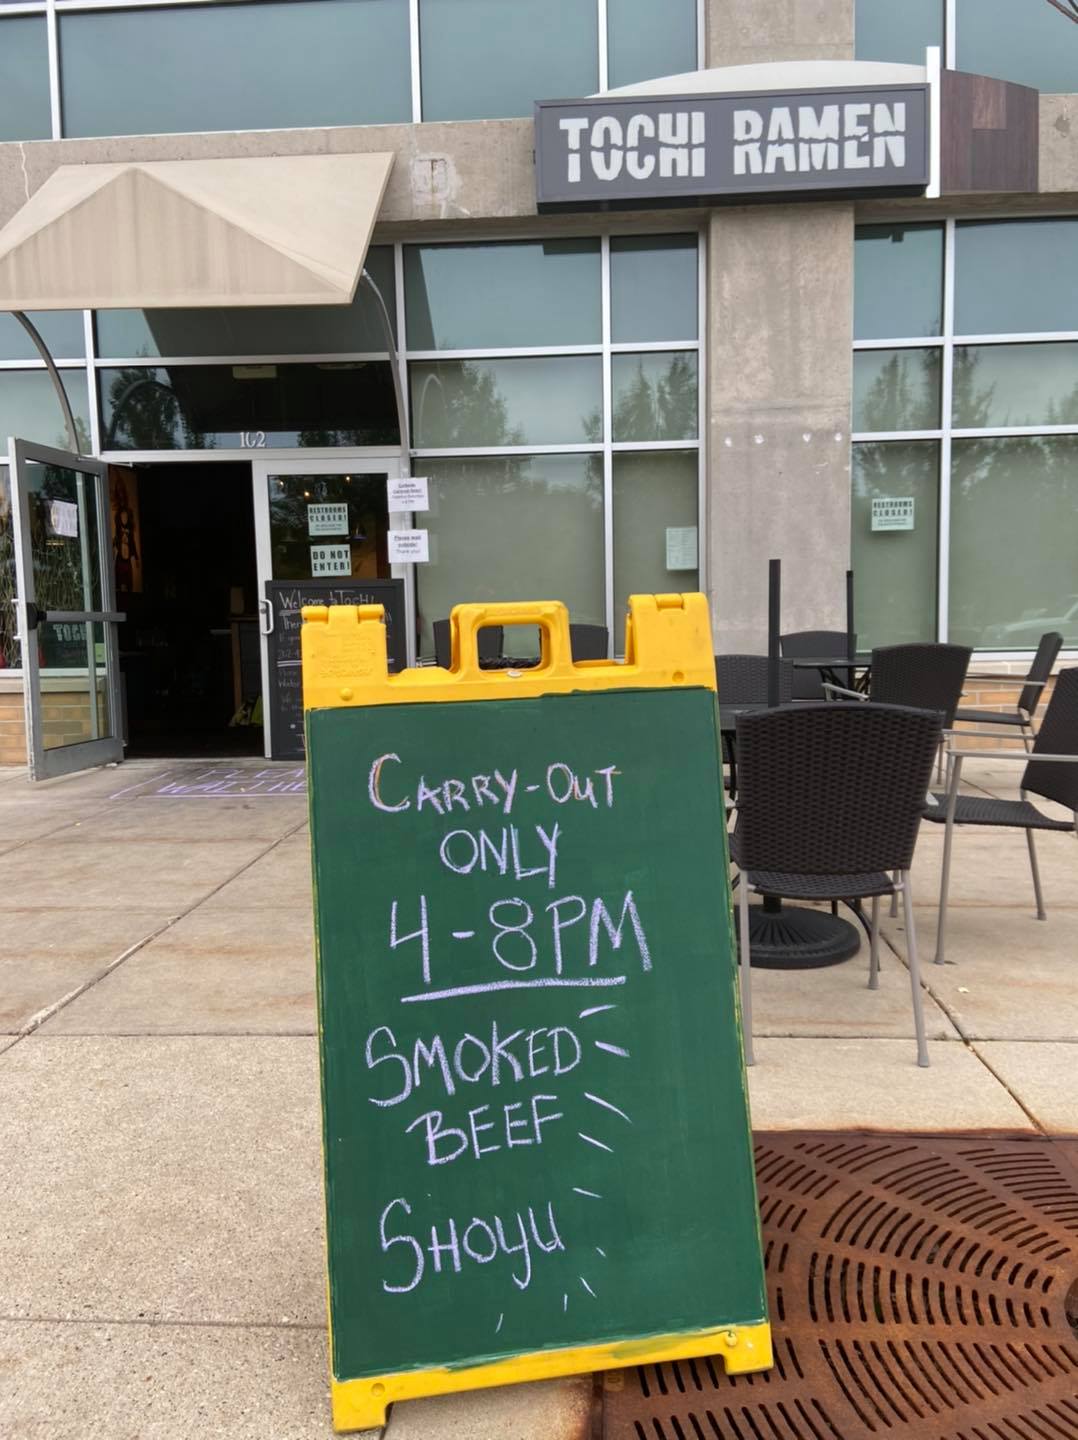 TOCHI RAMEN
102
RESTROOMS
CLOSED!
DO NOT
ENTER!
Please wait
outside!
Thank you!
RESTROOMS
CLOSED!
Welcome to Tochi!
TOCHI
CARRY-OUT
ONLY
4-8PM
SMOKED
BEEF
SHOYU